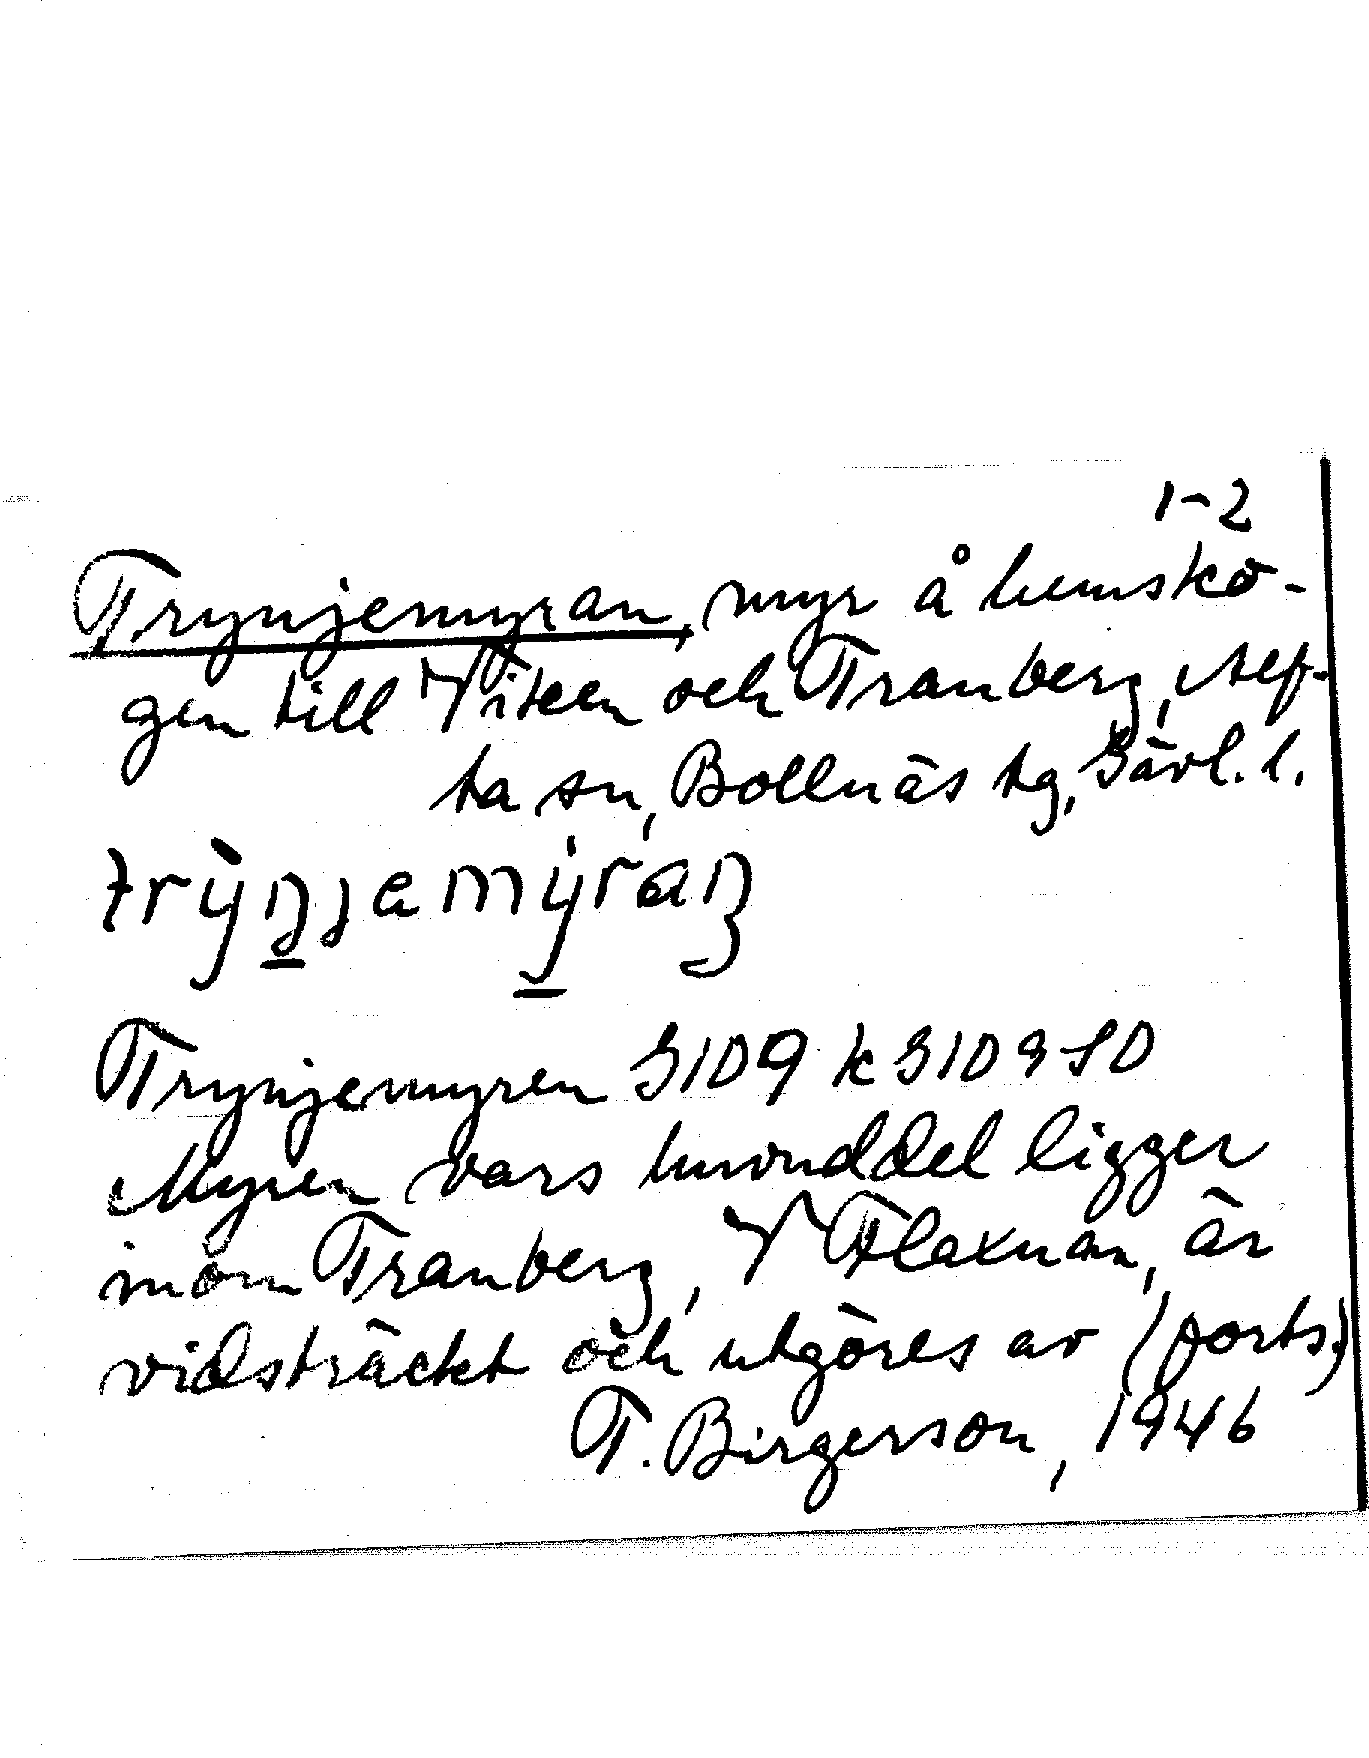 1-2
Trynjemyran, myr å hemsko-
gen till Viken och Tranberg, Alf-
ta sn, Bollnäs tg, Gävl. l.
Trynjemyren G109 k G109 SO
Myren vars huvuddel ligger
inom Tranberg, V Flaxnan, är
vidsträckt och utgöres av (forts.)
T. Birgerson, 1946